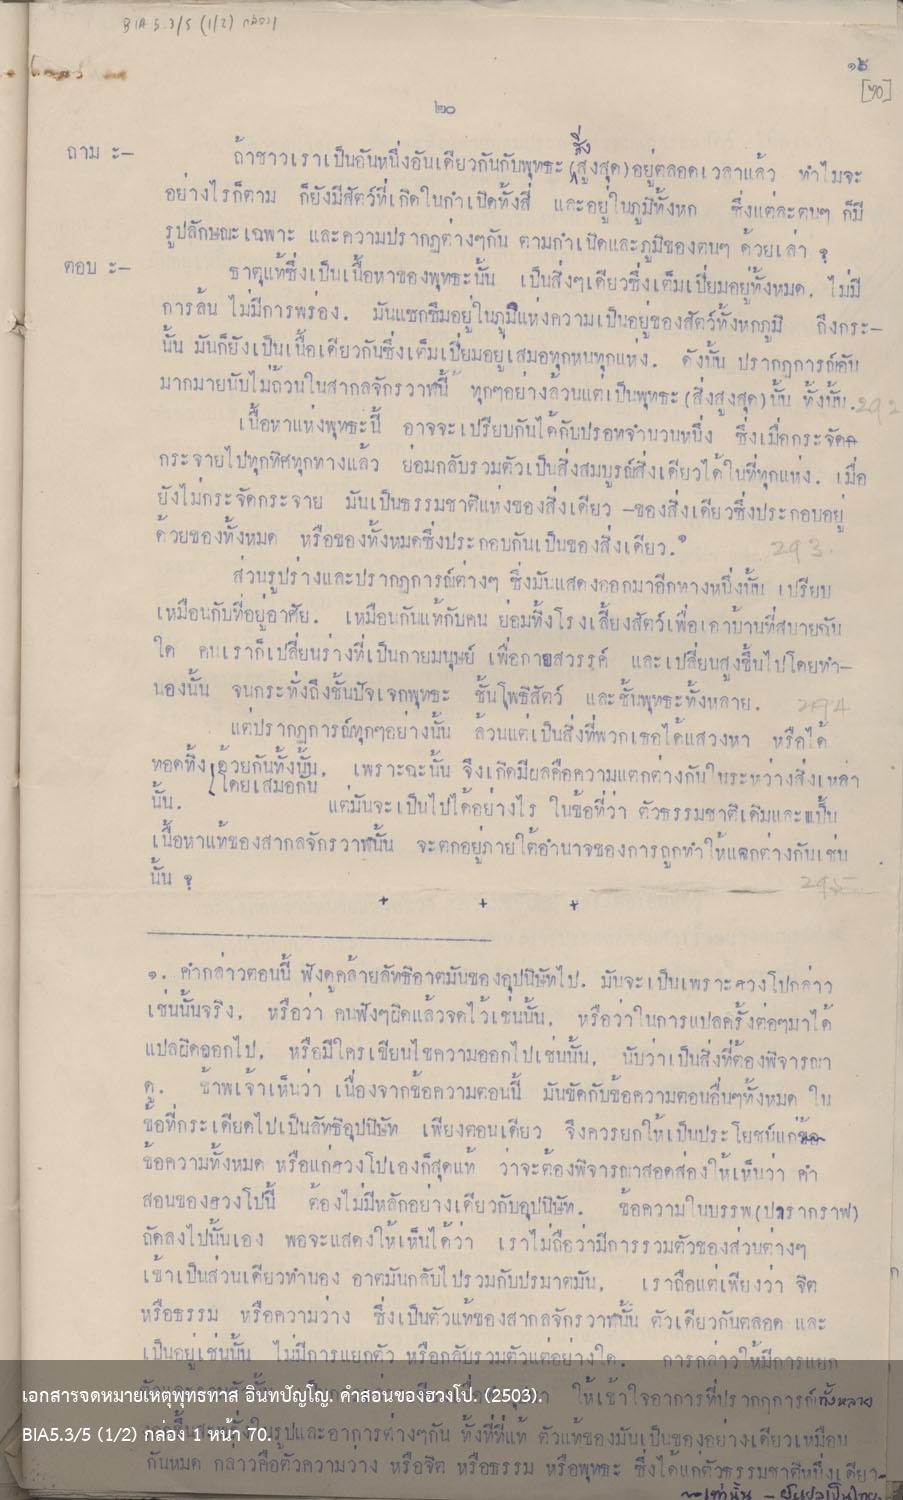 BIA 5.3/5 (1/2) กล่อง1
๑๖
[๗๐]
๒๐
ถาม :- ถ้าชาวเราเป็นอันหนึ่งอันเดียวกันกับพุทธะ (ซึ่งสูงสุด) อยู่ตลอดเวลาแล้ว ทำไมจะ
อย่างไรก็ตาม ก็ยังมีสัตว์ที่เกิดในกำเปิดทั้งสี่ และอยู่ในภูมิทั้งหก ซึ่งแต่ละตนๆ ก็มี
รูปลักษณะเฉพาะ และความปรากฏต่างๆกัน ตามกำเปิดและภูมิของตนๆ ด้วยเล่า ?
ตอบ :- ธาตุแท้ซึ่งเป็นเนื้อหาของพุทธะนั้น เป็นสิ่งๆเดียวซึ่งเต็มเปี่ยมอยู่ทั้งหมด. ไม่มี
การล้น ไม่มีการพร่อง. มันแซกซึมอยู่ในภูมิแห่งความเป็นอยู่ของสัตว์ทั้งหกภูมิ ถึงกระ-
นั้น มันก็ยังเป็นเนื้อเดียวกันซึ่งเต็มเปี่ยมอยู่เสมอทุกหนทุกแห่ง. ดังนั้น ปรากฏการณ์อัน
มากมายนับไม่ถ้วนในสากลจักรวาฬนี้ ทุกๆอย่างล้วนแต่เป็นพุทธะ (สิ่งสูงสุด) นั้น ทั้งนั้น. 292
เนื้อหาแห่งพุทธะนี้ อาจจะเปรียบกันได้กับปรอทจำนวนหนึ่ง ซึ่งเมื่อกระจัด
กระจายไปทุกทิศทุกทางแล้ว ย่อมกลับรวมตัวเป็นสิ่งสมบูรณ์สิ่งเดียวได้ในที่ทุกแห่ง. เมื่อ
ยังไม่กระจัดกระจาย มันเป็นธรรมชาติแห่งของสิ่งเดียว -ของสิ่งเดียวซึ่งประกอบอยู่
ด้วยของทั้งหมด หรือของทั้งหมดซึ่งประกอบกันเป็นของสิ่งเดียว.๑ 293.
ส่วนรูปร่างและปรากฏการณ์ต่างๆ ซึ่งมันแสดงออกมาอีกทางหนึ่งนั้น เปรียบ
เหมือนกับที่อยู่อาศัย. เหมือนกันแท้กับคน ย่อมทิ้งโรงเลี้ยงสัตว์เพื่อเอาบ้านที่สบายฉัน
ใด คนเราก็เปลี่ยนร่างที่เป็นกายมนุษย์ เพื่อกายสวรรค์ และเปลี่ยนสูงขึ้นไปโดยทำ-
นองนั้น จนกระทั่งถึงชั้นปัจเจกพุทธะ ชั้นโพธิสัตว์ และชั้นพุทธะทั้งหลาย. 294
แต่ปรากฏการณ์ทุกๆอย่างนั้น ล้วนแต่เป็นสิ่งที่พวกเธอได้แสวงหา หรือได้
ทอดทิ้ง ด้วยกันทั้งนั้น. เพราะฉะนั้น จึงเกิดมีผลคือความแตกต่างกันในระหว่างสิ่งเหล่า
โดยเสมอกัน
นั้น. แต่มันจะเป็นไปได้อย่างไร ในข้อที่ว่า ตัวธรรมชาติเดิมและเป็น
เนื้อหาแท้ของสากลจักรวาฬนั้น จะตกอยู่ภายใต้อำนาจของการถูกทำให้แตกต่างกันเช่น
นั้น ? 295
+ + +
๑. คำกล่าวตอนนี้ ฟังดูคล้ายลัทธิอาตมันของอุปนิษัทไป. มันจะเป็นเพราะฮวงโปกล่าว
เช่นนั้นจริง, หรือว่า คนฟังๆผิดแล้วจดไว้เช่นนั้น, หรือว่าในการแปลครั้งต่อๆมาได้
แปลผิดออกไป, หรือมีใครเขียนไขความออกไปเช่นนั้น, นับว่าเป็นสิ่งที่ต้องพิจารณา
ดู. ข้าพเจ้าเห็นว่า เนื่องจากข้อความตอนนี้ มันขัดกับข้อความตอนอื่นๆทั้งหมด ใน
ข้อที่กระเดียดไปเป็นลัทธิอุปนิษัท เพียงตอนเดียว จึงควรยกให้เป็นประโยชน์แก่
ข้อความทั้งหมด หรือแก่ฮวงโปเองก็สุดแท้ ว่าจะต้องพิจารณาสอดส่องให้เห็นว่า คำ
สอนของฮวงโปนี้ ต้องไม่มีหลักอย่างเดียวกับอุปนิษัท. ข้อความในบรรพ(ปารากราฟ)
ถัดลงไปนั้นเอง พอจะแสดงให้เห็นได้ว่า เราไม่ถือว่ามีการรวมตัวของส่วนต่างๆ
เข้าเป็นส่วนเดียวทำนอง อาตมันกลับไปรวมกับปรมาตมัน, เราถือแต่เพียงว่า จิต
หรือธรรม หรือความว่าง ซึ่งเป็นตัวแท้ของสากลจักรวาฬนั้น ตัวเดียวกันตลอด และ
เป็นอยู่เช่นนั้น ไม่มีการแยกตัว หรือกลับรวมตัวแต่อย่างใด. การกล่าวให้มีการแยก
ให้เข้าใจอาการที่ปรากฏการณ์ทั้งหลาย
ในรูปและอาการต่างๆกัน ทั้งที่ที่แท้ ตัวแท้ของมันเป็นของอย่างเดียวเหมือน
กันหมด กล่าวคือตัวความว่าง หรือจิต หรือธรรม หรือพุทธะ ซึ่งได้แก่ตัวธรรมชาติหนึ่งเดียว-
เท่านั้น - ผู้แปลเป็นไทย.
เอกสารจดหมายเหตุพุทธทาส อินทปัญโญ. คำสอนของฮวงโป. (2503).
BIA5.3/5 (1/2) กล่อง 1 หน้า 70.